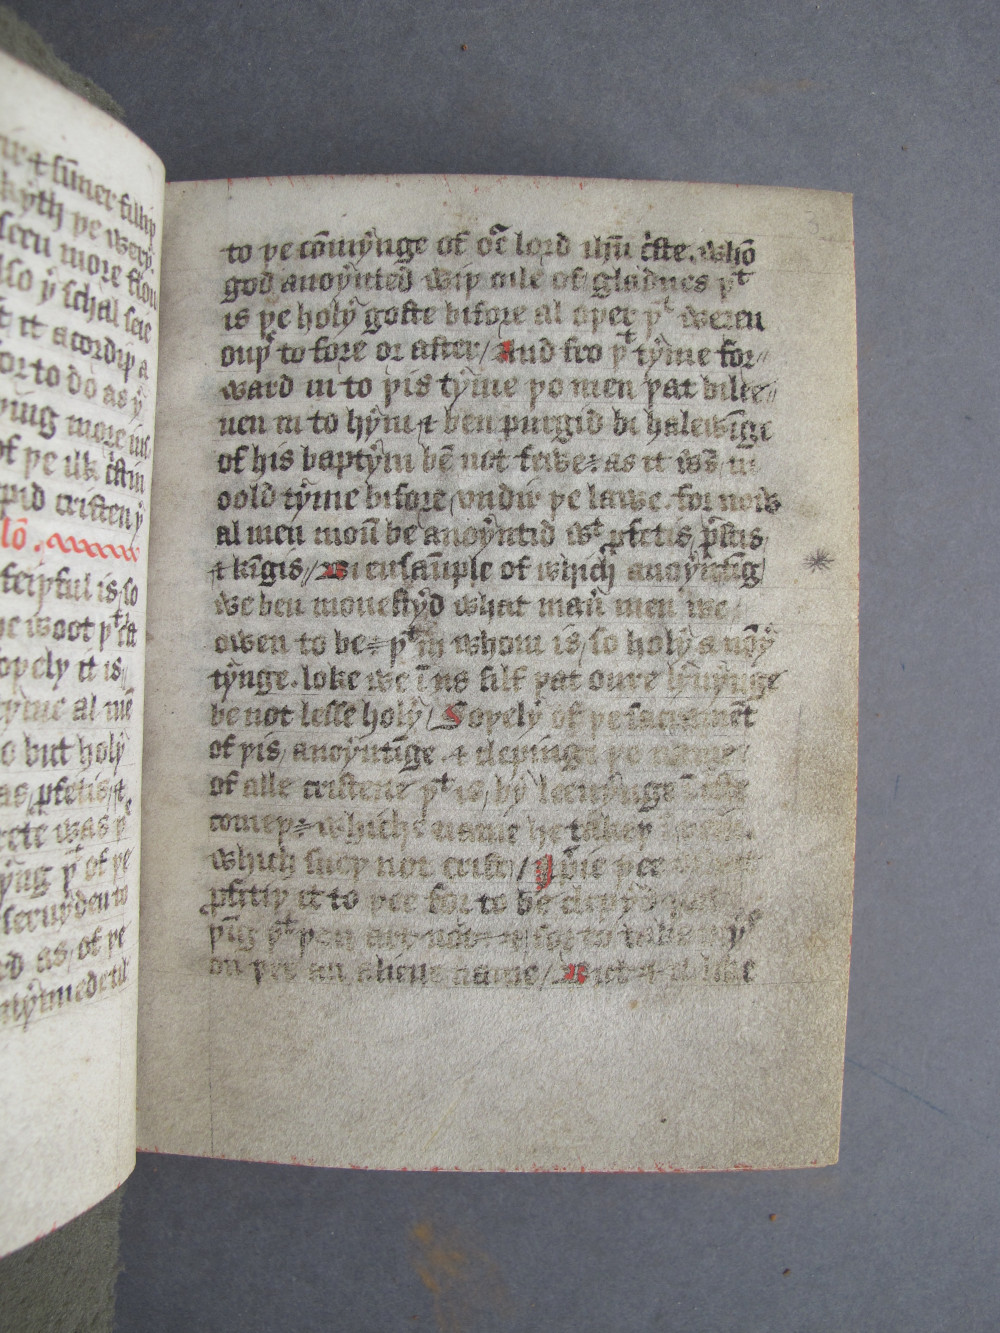 ir & sūner fillīp
kyth þe wery
seen more flou
lso ẏ schal seie
t it acordiþ a
for to do as ẏ
ying more iu
of þe ilk cristin
þid cristen ẏ
lō.
feiþful is so
he woot þt
soþely it is
tyme al mē
o but holy
as pfetis &
rete was þe
yng þt of þe
seruyden to
rd as of þe
to þe cōmẏnge of oure lord ihū crīste. whō
god anoẏnted wiþ oile of gladnes þt
is þe holẏ goste bifore al oþer þt weren
ouþer to fore or after/ And fro þt tẏme for//
ward in to þis tẏme þo men þat bilee//
uen in to hẏm & ben purgid bi halewīge
of his baptẏm bē not fewe: as it was in
oold tẏme bifore/ vndir þe lawe. for now
al men moū be anoẏntid wt pfetis/ prestis/
& kīngis// Bi ensaūple of whicħ anoẏntīg
we ben mouestẏd what maner men we
owen to be: þt in whom is/ so holẏ a noẏ
tẏnge. loke we ī us silf þat oure lẏuẏnge
be not lesse holẏ/ Soþelẏ of þe sacramēt
of þis/ anoẏntīge. & cleþinge þe name/
of alle cristene þt is/ bẏ leeuẏnge ī criste
comeþ: whiche name he takeþ
which sueþ not crist// þee
pfitiþ it to þee for to be clepẏd
þīg þt þou art not: & for to take
on þee an aliene name/ like